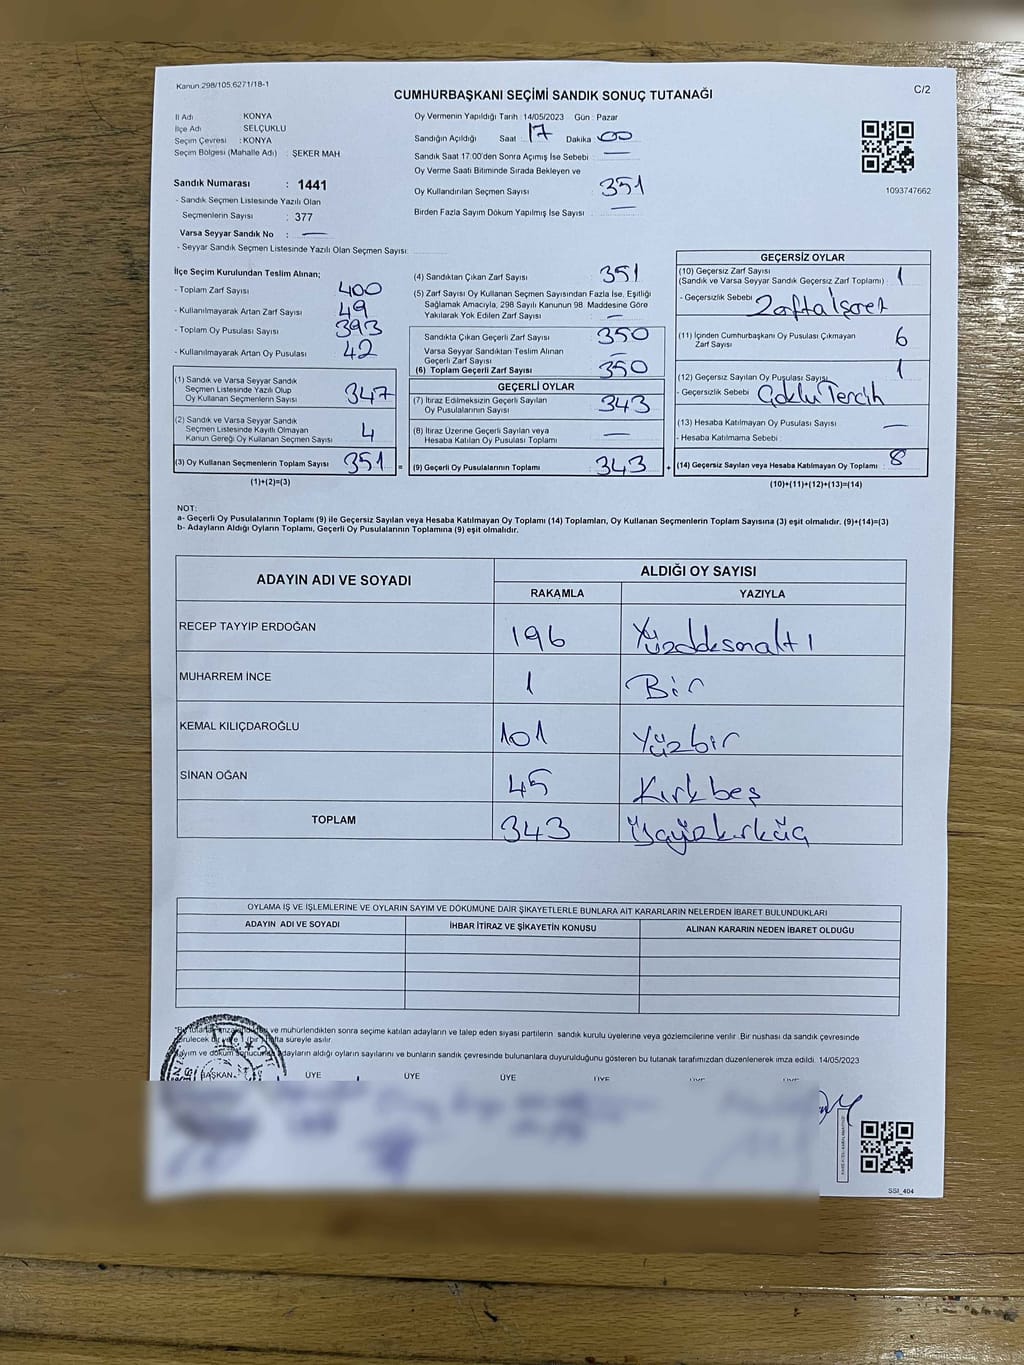 Kanun 298/105,6271/18-1
C/2
CUMHURBAŞKANI SEÇİMİ SANDIK SONUÇ TUTANAĞI
İl Adı KONYA
İlçe Adı SELÇUKLU
Seçim Çevresi : KONYA
Seçim Bölgesi (Mahalle Adı) : ŞEKER MAH
Sandık Numarası : 1441
- Sandık Seçmen Listesinde Yazılı Olan
Seçmenlerin Sayısı : 377
Varsa Seyyar Sandık No : —
- Seyyar Sandık Seçmen Listesinde Yazılı Olan Seçmen Sayısı
Oy Vermenin Yapıldığı Tarih : 14/05/2023 Gün : Pazar
Sandığın Açıldığı Saat 17 Dakika 00
Sandık Saat 17:00'den Sonra Açımış İse Sebebi —
Oy Verme Saati Bitiminde Sırada Bekleyen ve
Oy Kullandırılan Seçmen Sayısı 351
Birden Fazla Sayım Döküm Yapılmış İse Sayısı —
1093747662
İlçe Seçim Kurulundan Teslim Alınan;
- Toplam Zarf Sayısı 400
- Kullanılmayarak Artan Zarf Sayısı 49
- Toplam Oy Pusulası Sayısı 393
- Kullanılmayarak Artan Oy Pusulası 42
(1) Sandık ve Varsa Seyyar Sandık
Seçmen Listesinde Yazılı Olup
Oy Kullanan Seçmenlerin Sayısı 347
(2) Sandık ve Varsa Seyyar Sandık
Seçmen Listesinde Kayıtlı Olmayan
Kanun Gereği Oy Kullanan Seçmen Sayısı 4
(3) Oy Kullanan Seçmenlerin Toplam Sayısı 351 =
(1)+(2)=(3)
(4) Sandıktan Çıkan Zarf Sayısı 351
(5) Zarf Sayısı Oy Kullanan Seçmen Sayısından Fazla İse, Eşitliği
Sağlamak Amacıyla, 298 Sayılı Kanunun 98. Maddesine Göre
Yakılarak Yok Edilen Zarf Sayısı —
Sandıkta Çıkan Geçerli Zarf Sayısı 350
Varsa Seyyar Sandıktan Teslim Alınan
Geçerli Zarf Sayısı —
(6) Toplam Geçerli Zarf Sayısı 350
GEÇERLİ OYLAR
(7) İtiraz Edilmeksizin Geçerli Sayılan
Oy Pusulalarının Sayısı 343
(8) İtiraz Üzerine Geçerli Sayılan veya
Hesaba Katılan Oy Pusulası Toplamı —
(9) Geçerli Oy Pusulalarının Toplamı 343 +
GEÇERSİZ OYLAR
(10) Geçersiz Zarf Sayısı
(Sandık ve Varsa Seyyar Sandık Geçersiz Zarf Toplamı) : 1
- Geçersizlik Sebebi Zarfta İşaret
(11) İçinden Cumhurbaşkanı Oy Pusulası Çıkmayan
Zarf Sayısı 6
(12) Geçersiz Sayılan Oy Pusulası Sayısı 1
- Geçersizlik Sebebi Çoklu Tercih
(13) Hesaba Katılmayan Oy Pusulası Sayısı —
- Hesaba Katılmama Sebebi
(14) Geçersiz Sayılan veya Hesaba Katılmayan Oy Toplamı : 8
(10)+(11)+(12)+(13)=(14)
NOT:
a- Geçerli Oy Pusulalarının Toplamı (9) ile Geçersiz Sayılan veya Hesaba Katılmayan Oy Toplamı (14) Toplamları, Oy Kullanan Seçmenlerin Toplam Sayısına (3) eşit olmalıdır. (9)+(14)=(3)
b- Adayların Aldığı Oyların Toplamı, Geçerli Oy Pusulalarının Toplamına (9) eşit olmalıdır.
ADAYIN ADI VE SOYADI ALDIĞI OY SAYISI
RAKAMLA YAZIYLA
RECEP TAYYİP ERDOĞAN 196 Yüzdoksanaltı
MUHARREM İNCE 1 Bir
KEMAL KILIÇDAROĞLU 101 Yüzbir
SİNAN OĞAN 45 Kırkbeş
TOPLAM 343 Üçyüzkırküç
OYLAMA İŞ VE İŞLEMLERİNE VE OYLARIN SAYIM VE DÖKÜMÜNE DAİR ŞİKAYETLERLE BUNLARA AİT KARARLARIN NELERDEN İBARET BULUNDUKLARI
ADAYIN ADI VE SOYADI İHBAR İTİRAZ VE ŞİKAYETİN KONUSU ALINAN KARARIN NEDEN İBARET OLDUĞU
ve mühürlendikten sonra seçime katılan adayların ve talep eden siyasi partilerin sandık kurulu üyelerine veya gözlemcilerine verilir. Bir nushası da sandık çevresinde
süreyle asılır.
adayların aldığı oyların sayılarını ve bunların sandık çevresinde bulunanlara duyurulduğunu gösteren bu tutanak tarafımızdan düzenlenerek imza edildi. 14/05/2023
BAŞKAN ÜYE ÜYE ÜYE ÜYE
SSI_404